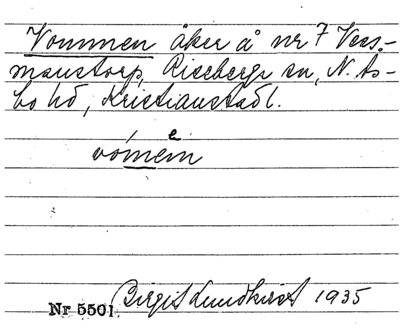 Vommen åker å nr 7 Vess-
manstorp, Riseberga sn, N. Ås-
bo hd, Kristianstadsl.
e
vómem
Nr 5501. Birgit Lundkvist 1935